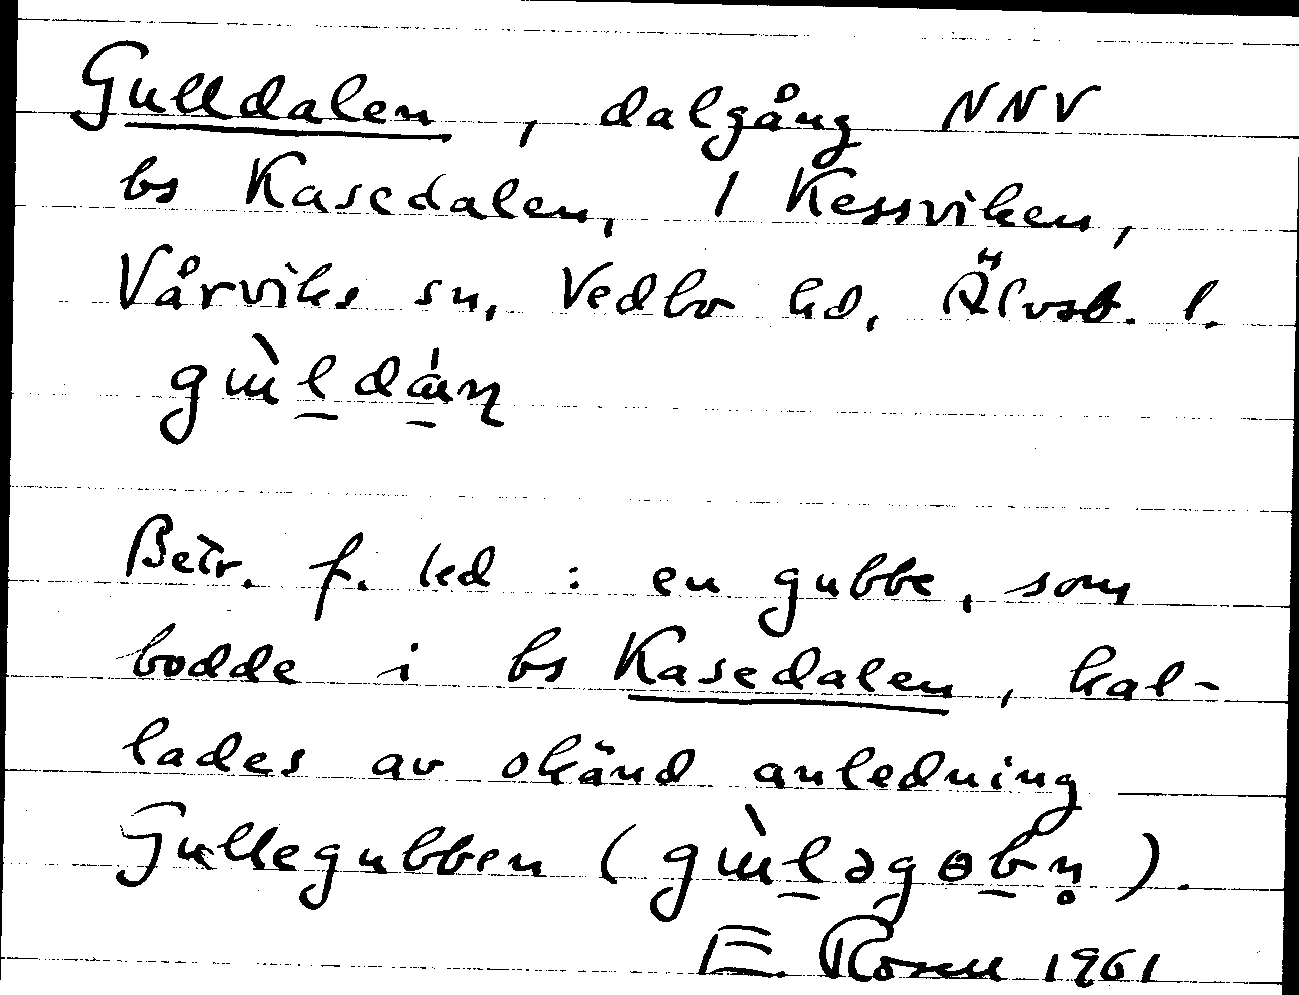 Gulldalen, dalgång NNV
bs Kasedalen, 1 Kessviken,
Vårviks sn, Vedbo hd, Älvsb. l.
Betr. f. led : en gubbe, som
bodde i bs Kasedalen, kal-
lades av okänd anledning
Gullegubben (gɯ̀l̠əgɵb̠n̥).
E. Rosen 1961